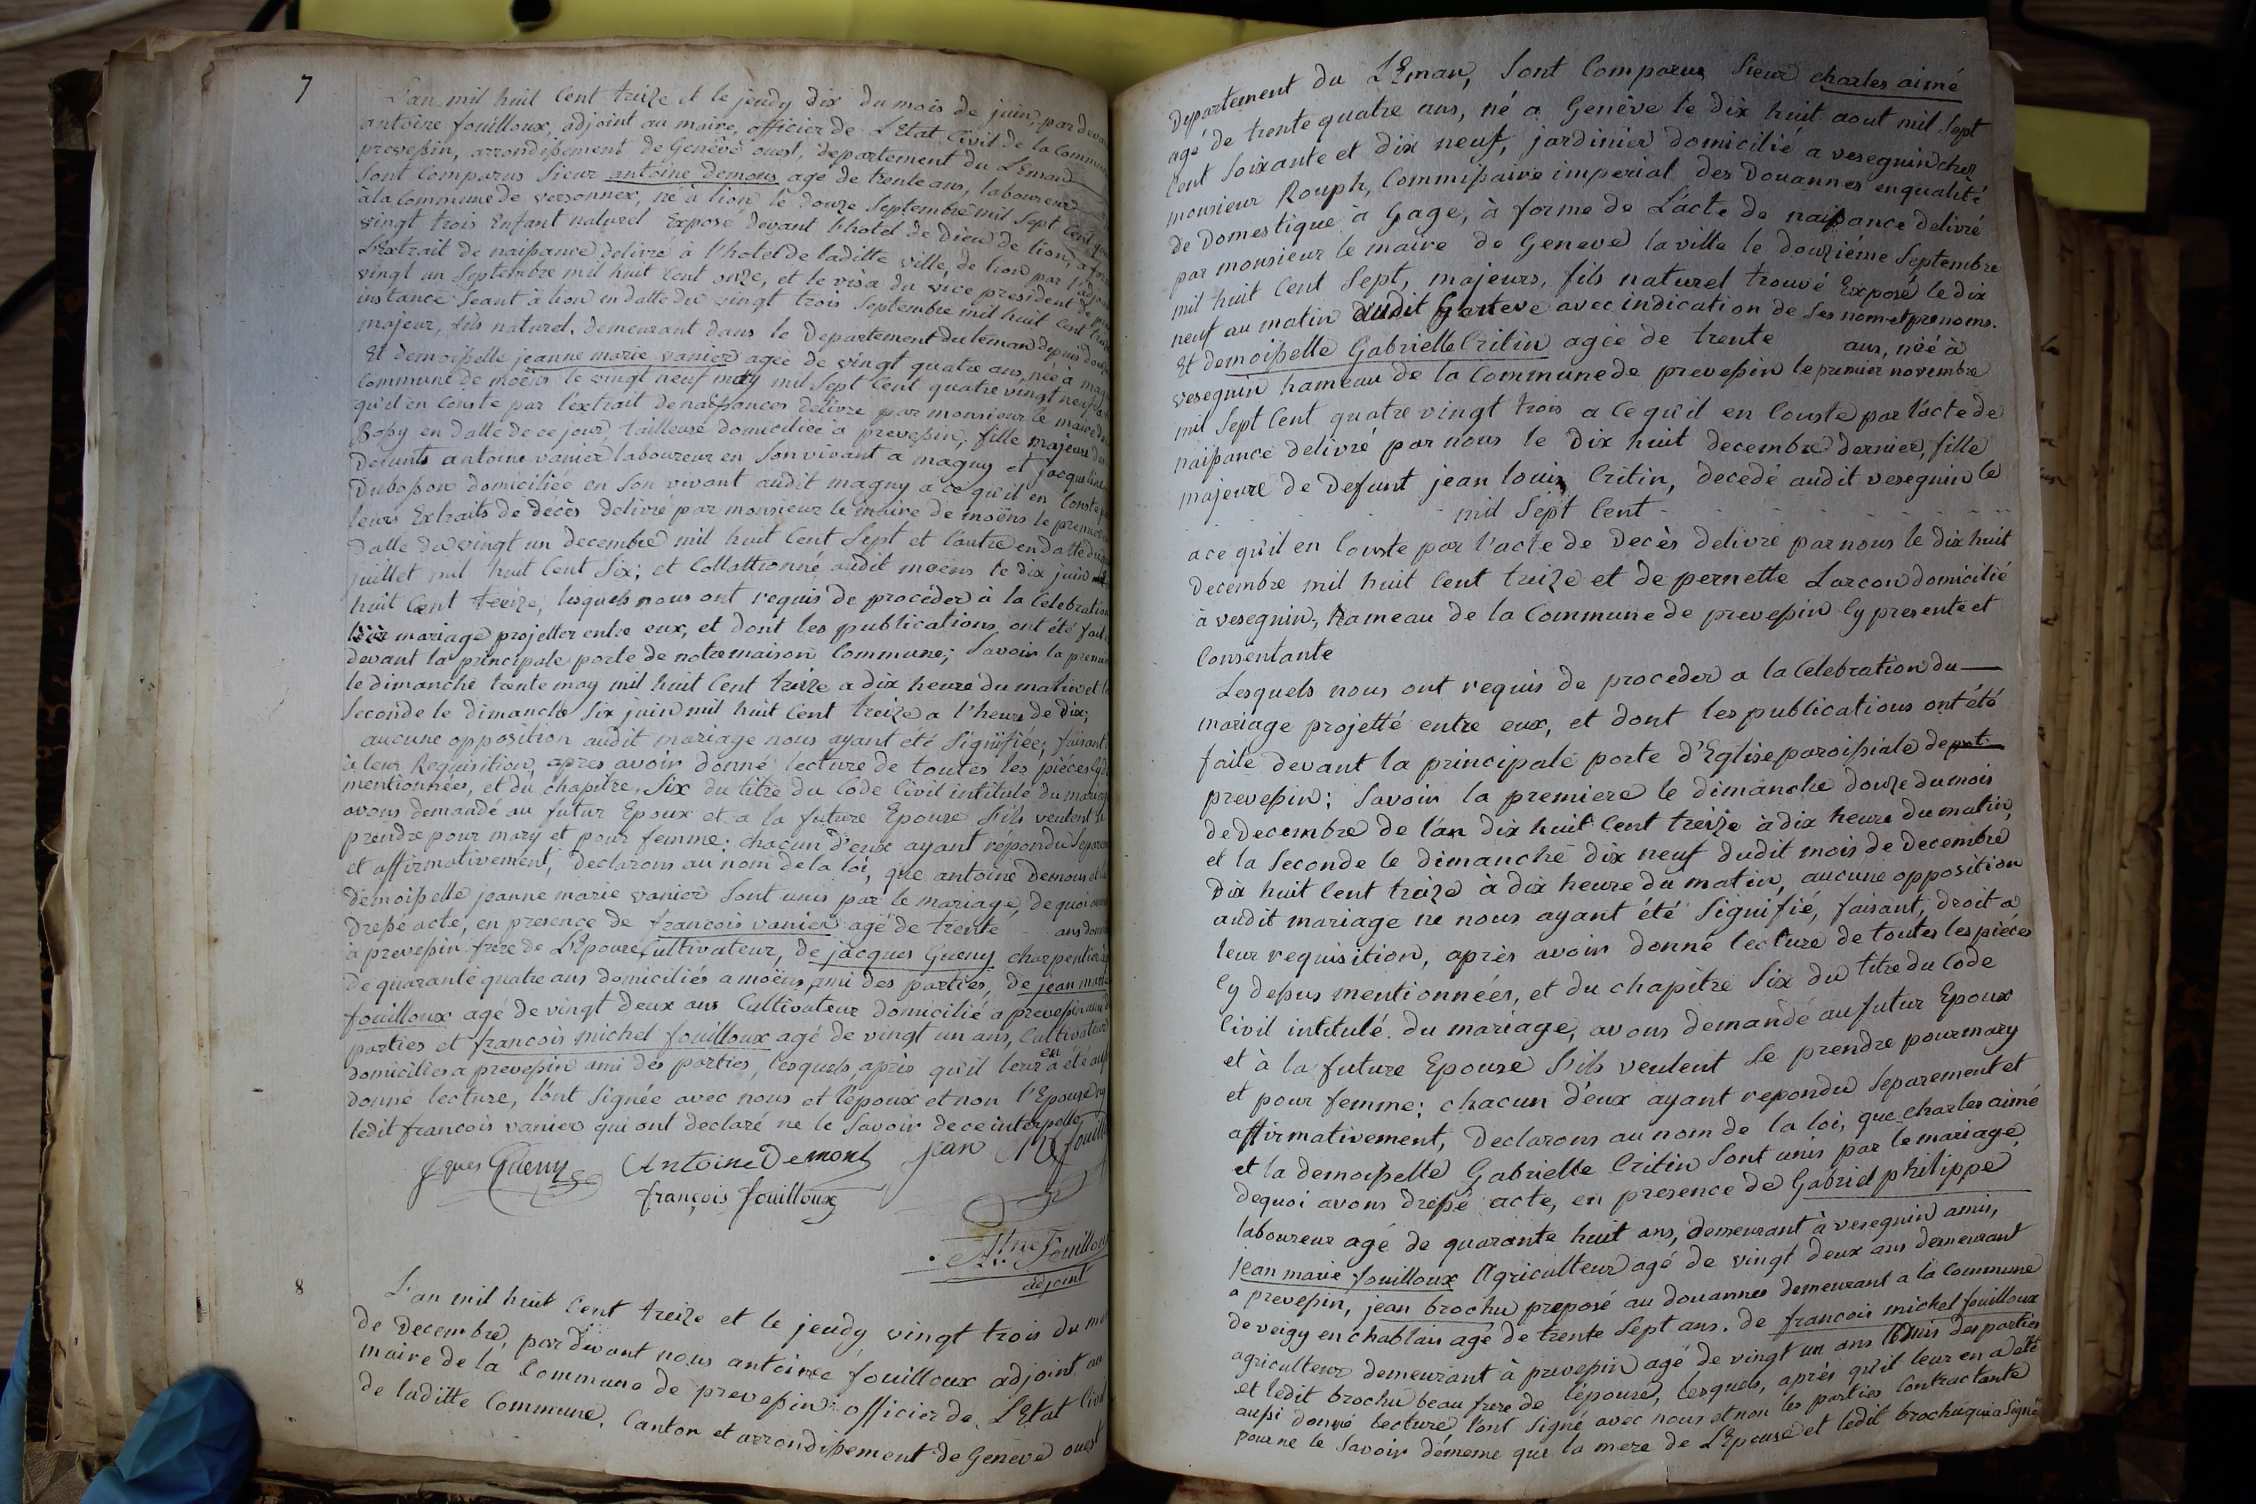 7
L'an mil huit Cent treize et le jeudy dix du mois de juin, par devant
antoine fouilloux, adjoint au maire, officier de L'Etat Civil de la Commune
prevessin, arrondissement de Genêve ouest, departement du Léman
Sont Comparus Sieur antoine demons agé de trente ans, laboureur
à la Commune de versonnex, né à lion le douze Septembre mil Sept Cent
vingt trois Enfant naturel Exposé devant l'hotel de Dieu de lion, a
L'extrait de naissance delivré à l'hotel de laditte ville de lion par l'adj
vingt un Septembre mil huit cent onze, et le visa du vice president de
instance Seant à lion en datte du vingt trois Septembre mil huit Cent
majeur, fils naturel, demeurant dans le Departement du leman depuis
Et demoisselle jeanne marie vanier agée de vingt quatre ans, née à
Commune de moëns le vingt neuf may mil Sept Cent quatre vingt neuf
qu'il en Conste par l'extrait de naissances delivré par monsieur le maire
Bossy en datte de ce jour, tailleuse domiciliée a prevessin, fille majeure
Defunts antoine vanier laboureur en Son vivant a magny et jacqueline
Dubosson domiciliée en Son vivant audit magny a ce qu'il en Conste
leurs Extraits de decès delivré par monsieur le maire de moëns le premier
datte du vingt un decembre mil huit Cent Sept et l'autre en datte du
juillet mil huit Cent Six; et Collattionné audit moëns le dix juin mil
huit Cent treize, lesquels nous ont requis de procéder à la Celebration
mariage projetter entre eux, et dont les publications ont été faite
devant la principale porte de notre maison Commune; Savoir la premiere
le dimanche tante may mil huit Cent treize a dix heure du matin et la
Seconde le dimanche Six juin mil huit Cent treize a l'heure de dix;
aucune opposition audit mariage nous ayant été Signifiée; faisant
à leur Requisition, apres avoir donné lecture de toutes les pièces Cy
mentionnées, et du chapitre, Six du titre du Code Civil intitulé du mariage
avons demandé au futur Epoux et a la future Epouse S'ils veulent Se
prendre pour mary et pour femme; chacun d'eux ayant répondu Separement
et affirmativement, declarons au nom de la loi, que antoine Demons et
demoisselle jeanne marie vanier Sont unis par le mariage, de quoi avons
dressé acte, en presence de francois vanier agé de trente - ans
à prevessin frere de L'Epouse Cultivateur, de jacques Gueny charpentier
de quarante quatre ans domiciliés a moëns, ami des parties, de jean marie
fouilloux agé de vingt deux ans Cultivateur domicilié a prevessin ami
parties et francois michel fouilloux agé de vingt un ans, Cultivateur
domiciliés a prevessin ami des parties, lesquels après qu'il leur en a été aussi
donné lecture, l'ont Signée avec nous et l'epoux et non l'Epouse ny
ledit francois vanier qui ont declaré ne le Savoir de ce interpellé
Jques Gueny Antoine Demont jean Mie fouilloux
françois fouilloux
Ane Fouilloux
adjoint
8
L'an mil huit Cent treize et le jeudy vingt trois du mois
de Decembre, par devant nous antoine fouilloux adjoint au
maire de la Commune de prevessin officier de L'Etat Civil
de laditte Commune, Canton et arrondissement de Genêve ouest
Departement du Léman, Sont Comparus Sieur charles aimé
agé de trente quatre ans, né a Genêve le dix huit aout mil Sept
Cent Soixante et dix neuf, jardinier domicilié a veseguin chez
monsieur Rouph, Commissaire imperial des Douannes en qualité
de Domestique à Gage, à forme de L'acte de naissance delivré
par monsieur le maire de Geneve la ville le douziéme Septembre
mil huit Cent Sept, majeurs, fils naturel trouvé Exposé le dix
neuf au matin audit Genève avec indication de Ses nom et prenoms.
Et demoisselle Gabrielle Critin agée de trente ans, née à
veseguin hameau de la Commune de prevessin le premier novembre
mil Sept Cent quatre vingt trois a Ce qu'il en Conste par l'acte de
naissance delivré par nous le dix huit decembre dernier, fille
majeure de Defunt jean louis Critin, decedé audit veseguin le
mil Sept Cent
a ce qu'il en Conste par l'acte de Decès delivré par nous le dix huit
decembre mil huit Cent treize et de pernette Larcon domicilié
à veseguin, Hameau de la Commune de prevessin Cy presente et
Consentante
Lesquels nous ont requis de proceder a la Celebration du
mariage projetté entre eux, et dont les publications ont été
faite devant la principale porte d'Eglise paroissiale de
prevessin; Savoir la premiere le dimanche douze du mois
de decembre de l'an dix huit Cent treize à dix heure du matin,
et la Seconde le dimanche dix neuf dudit mois de decembre
dix huit Cent treize à dix heure du matin, aucune opposition
audit mariage ne nous ayant été Signifié, faisant, droit a
leur requisition, après avoir donné lecture de toutes les pièces
Cy dessus mentionnées, et du chapitre Six du titre du Code
Civil intitulé du mariage, avons demandé au futur Epoux
et à la future Epouse S'ils veulent Se prendre pour mary
et pour femme; chacun d'eux ayant repondu Separement et
affirmativement, Declarons au nom de la loi, que charles aimé
et la demoisselle Gabrielle Critin Sont unis par le mariage,
dequoi avons dressé acte, en presence de Gabriel philippe
laboureur agé de quarante huit ans, demeurant à veseguin amis,
jean marie fouilloux Agriculteur agé de vingt deux ans demeurant
a prevessin, jean brochu preposé au douannes demeurant a la Commune
de veigy en chablais agé de trente Sept ans. de francois michel fouilloux
agriculteur demeurant à prevessin agé de vingt un ans amis des parties
et ledit brochu beau frere de l'épouse, lesquels, après qu'il leur en a été
aussi donné lecture, l'ont Signé avec nous et non les parties Contractante
pour ne le Savoir demême que la mere de L'Epouse et ledit brochu qui a Signé